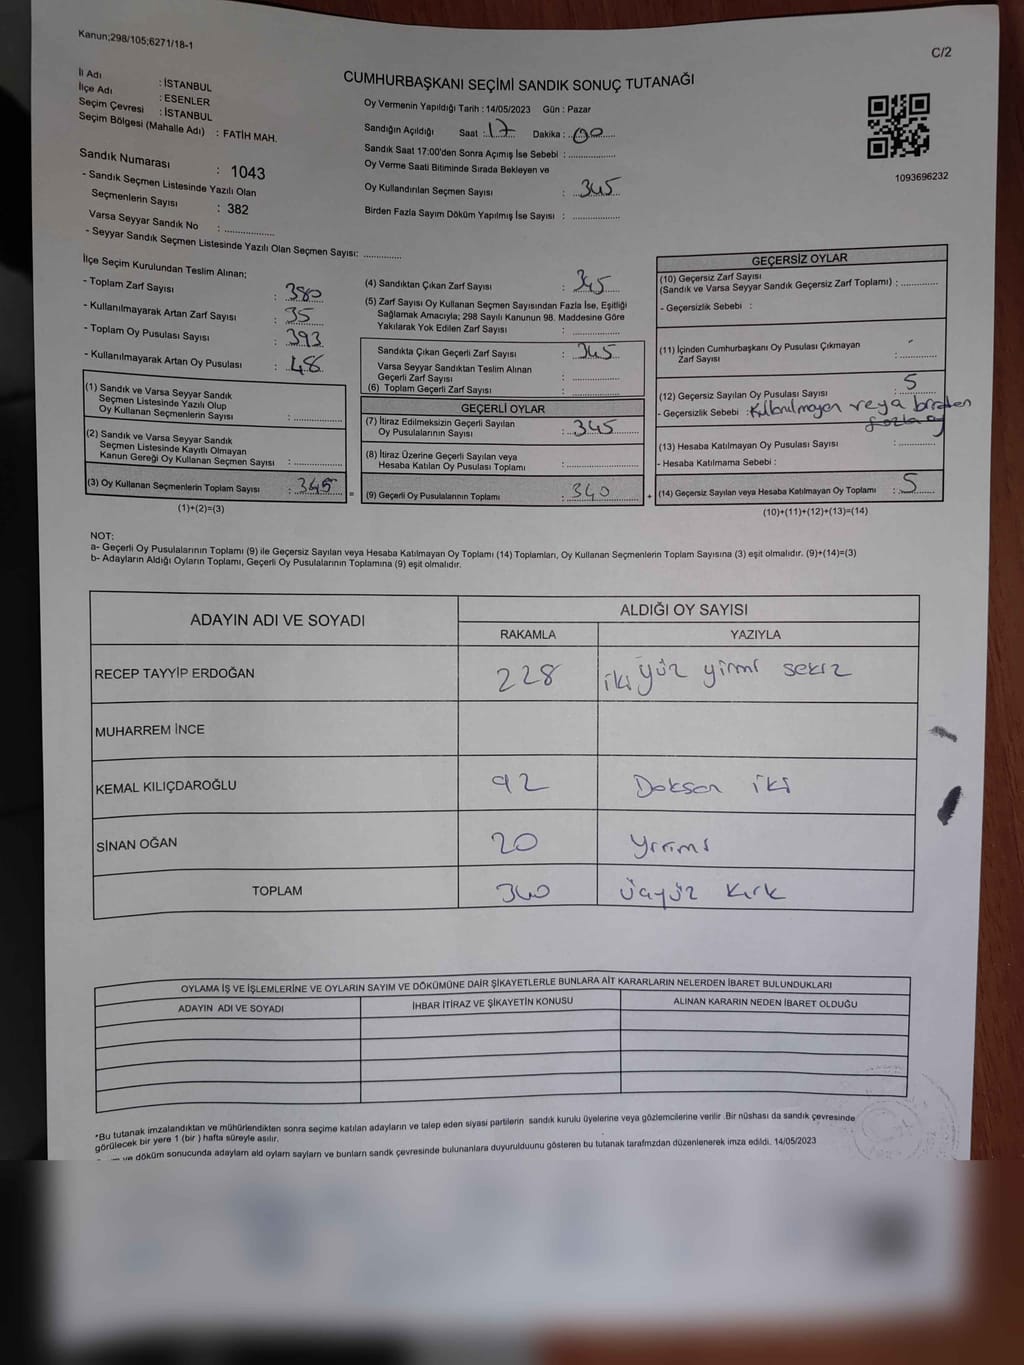 Kanun;298/105;6271/18-1
C/2
CUMHURBAŞKANI SEÇİMİ SANDIK SONUÇ TUTANAĞI
İl Adı : İSTANBUL
İlçe Adı : ESENLER
Seçim Çevresi : İSTANBUL
Seçim Bölgesi (Mahalle Adı) : FATİH MAH.
Sandık Numarası : 1043
- Sandık Seçmen Listesinde Yazılı Olan
Seçmenlerin Sayısı : 382
Varsa Seyyar Sandık No : ..............
- Seyyar Sandık Seçmen Listesinde Yazılı Olan Seçmen Sayısı: ............
Oy Vermenin Yapıldığı Tarih : 14/05/2023 Gün : Pazar
Sandığın Açıldığı Saat : 17 Dakika : 00
Sandık Saat 17:00'den Sonra Açımış İse Sebebi : ..............
Oy Verme Saati Bitiminde Sırada Bekleyen ve
Oy Kullandırılan Seçmen Sayısı : 345
Birden Fazla Sayım Döküm Yapılmış İse Sayısı : ..............
1093696232
İlçe Seçim Kurulundan Teslim Alınan;
- Toplam Zarf Sayısı : 380
- Kullanılmayarak Artan Zarf Sayısı : 35
- Toplam Oy Pusulası Sayısı : 393
- Kullanılmayarak Artan Oy Pusulası : 48
(1) Sandık ve Varsa Seyyar Sandık
Seçmen Listesinde Yazılı Olup
Oy Kullanan Seçmenlerin Sayısı : ..............
(2) Sandık ve Varsa Seyyar Sandık
Seçmen Listesinde Kayıtlı Olmayan
Kanun Gereği Oy Kullanan Seçmen Sayısı : ..............
(3) Oy Kullanan Seçmenlerin Toplam Sayısı : 345
(1)+(2)=(3)
(4) Sandıktan Çıkan Zarf Sayısı : 345
(5) Zarf Sayısı Oy Kullanan Seçmen Sayısından Fazla İse, Eşitliği
Sağlamak Amacıyla; 298 Sayılı Kanunun 98. Maddesine Göre
Yakılarak Yok Edilen Zarf Sayısı : ..............
Sandıkta Çıkan Geçerli Zarf Sayısı : 345
Varsa Seyyar Sandıktan Teslim Alınan
Geçerli Zarf Sayısı : ..............
(6) Toplam Geçerli Zarf Sayısı : ..............
GEÇERLİ OYLAR
(7) İtiraz Edilmeksizin Geçerli Sayılan
Oy Pusulalarının Sayısı : 345
(8) İtiraz Üzerine Geçerli Sayılan veya
Hesaba Katılan Oy Pusulası Toplamı : ..............
= (9) Geçerli Oy Pusulalarının Toplamı : 340 +
GEÇERSİZ OYLAR
(10) Geçersiz Zarf Sayısı
(Sandık ve Varsa Seyyar Sandık Geçersiz Zarf Toplamı) : ............
- Geçersizlik Sebebi :
(11) İçinden Cumhurbaşkanı Oy Pusulası Çıkmayan
Zarf Sayısı : ............
(12) Geçersiz Sayılan Oy Pusulası Sayısı : 5
- Geçersizlik Sebebi : Kullanılmayan veya birden
fazla oy
(13) Hesaba Katılmayan Oy Pusulası Sayısı : ............
- Hesaba Katılmama Sebebi :
(14) Geçersiz Sayılan veya Hesaba Katılmayan Oy Toplamı : 5
(10)+(11)+(12)+(13)=(14)
NOT:
a- Geçerli Oy Pusulalarının Toplamı (9) ile Geçersiz Sayılan veya Hesaba Katılmayan Oy Toplamı (14) Toplamları, Oy Kullanan Seçmenlerin Toplam Sayısına (3) eşit olmalıdır. (9)+(14)=(3)
b- Adayların Aldığı Oyların Toplamı, Geçerli Oy Pusulalarının Toplamına (9) eşit olmalıdır.
ADAYIN ADI VE SOYADI ALDIĞI OY SAYISI
RAKAMLA YAZIYLA
RECEP TAYYİP ERDOĞAN 228 iki yüz yirmi sekiz
MUHARREM İNCE
KEMAL KILIÇDAROĞLU 92 Doksan iki
SİNAN OĞAN 20 Yirmi
TOPLAM 340 üçyüz kırk
OYLAMA İŞ VE İŞLEMLERİNE VE OYLARIN SAYIM VE DÖKÜMÜNE DAİR ŞİKAYETLERLE BUNLARA AİT KARARLARIN NELERDEN İBARET BULUNDUKLARI
ADAYIN ADI VE SOYADI İHBAR İTİRAZ VE ŞİKAYETİN KONUSU ALINAN KARARIN NEDEN İBARET OLDUĞU
*Bu tutanak imzalandıktan ve mühürlendikten sonra seçime katılan adayların ve talep eden siyasi partilerin sandık kurulu üyelerine veya gözlemcilerine verilir .Bir nüshası da sandık çevresinde
görülecek bir yere 1 (bir ) hafta süreyle asılır.
ve döküm sonucunda adaylarn ald oylarn saylarn ve bunlarn sandk çevresinde bulunanlara duyurulduunu gösteren bu tutanak tarafmzdan düzenlenerek imza edildi. 14/05/2023